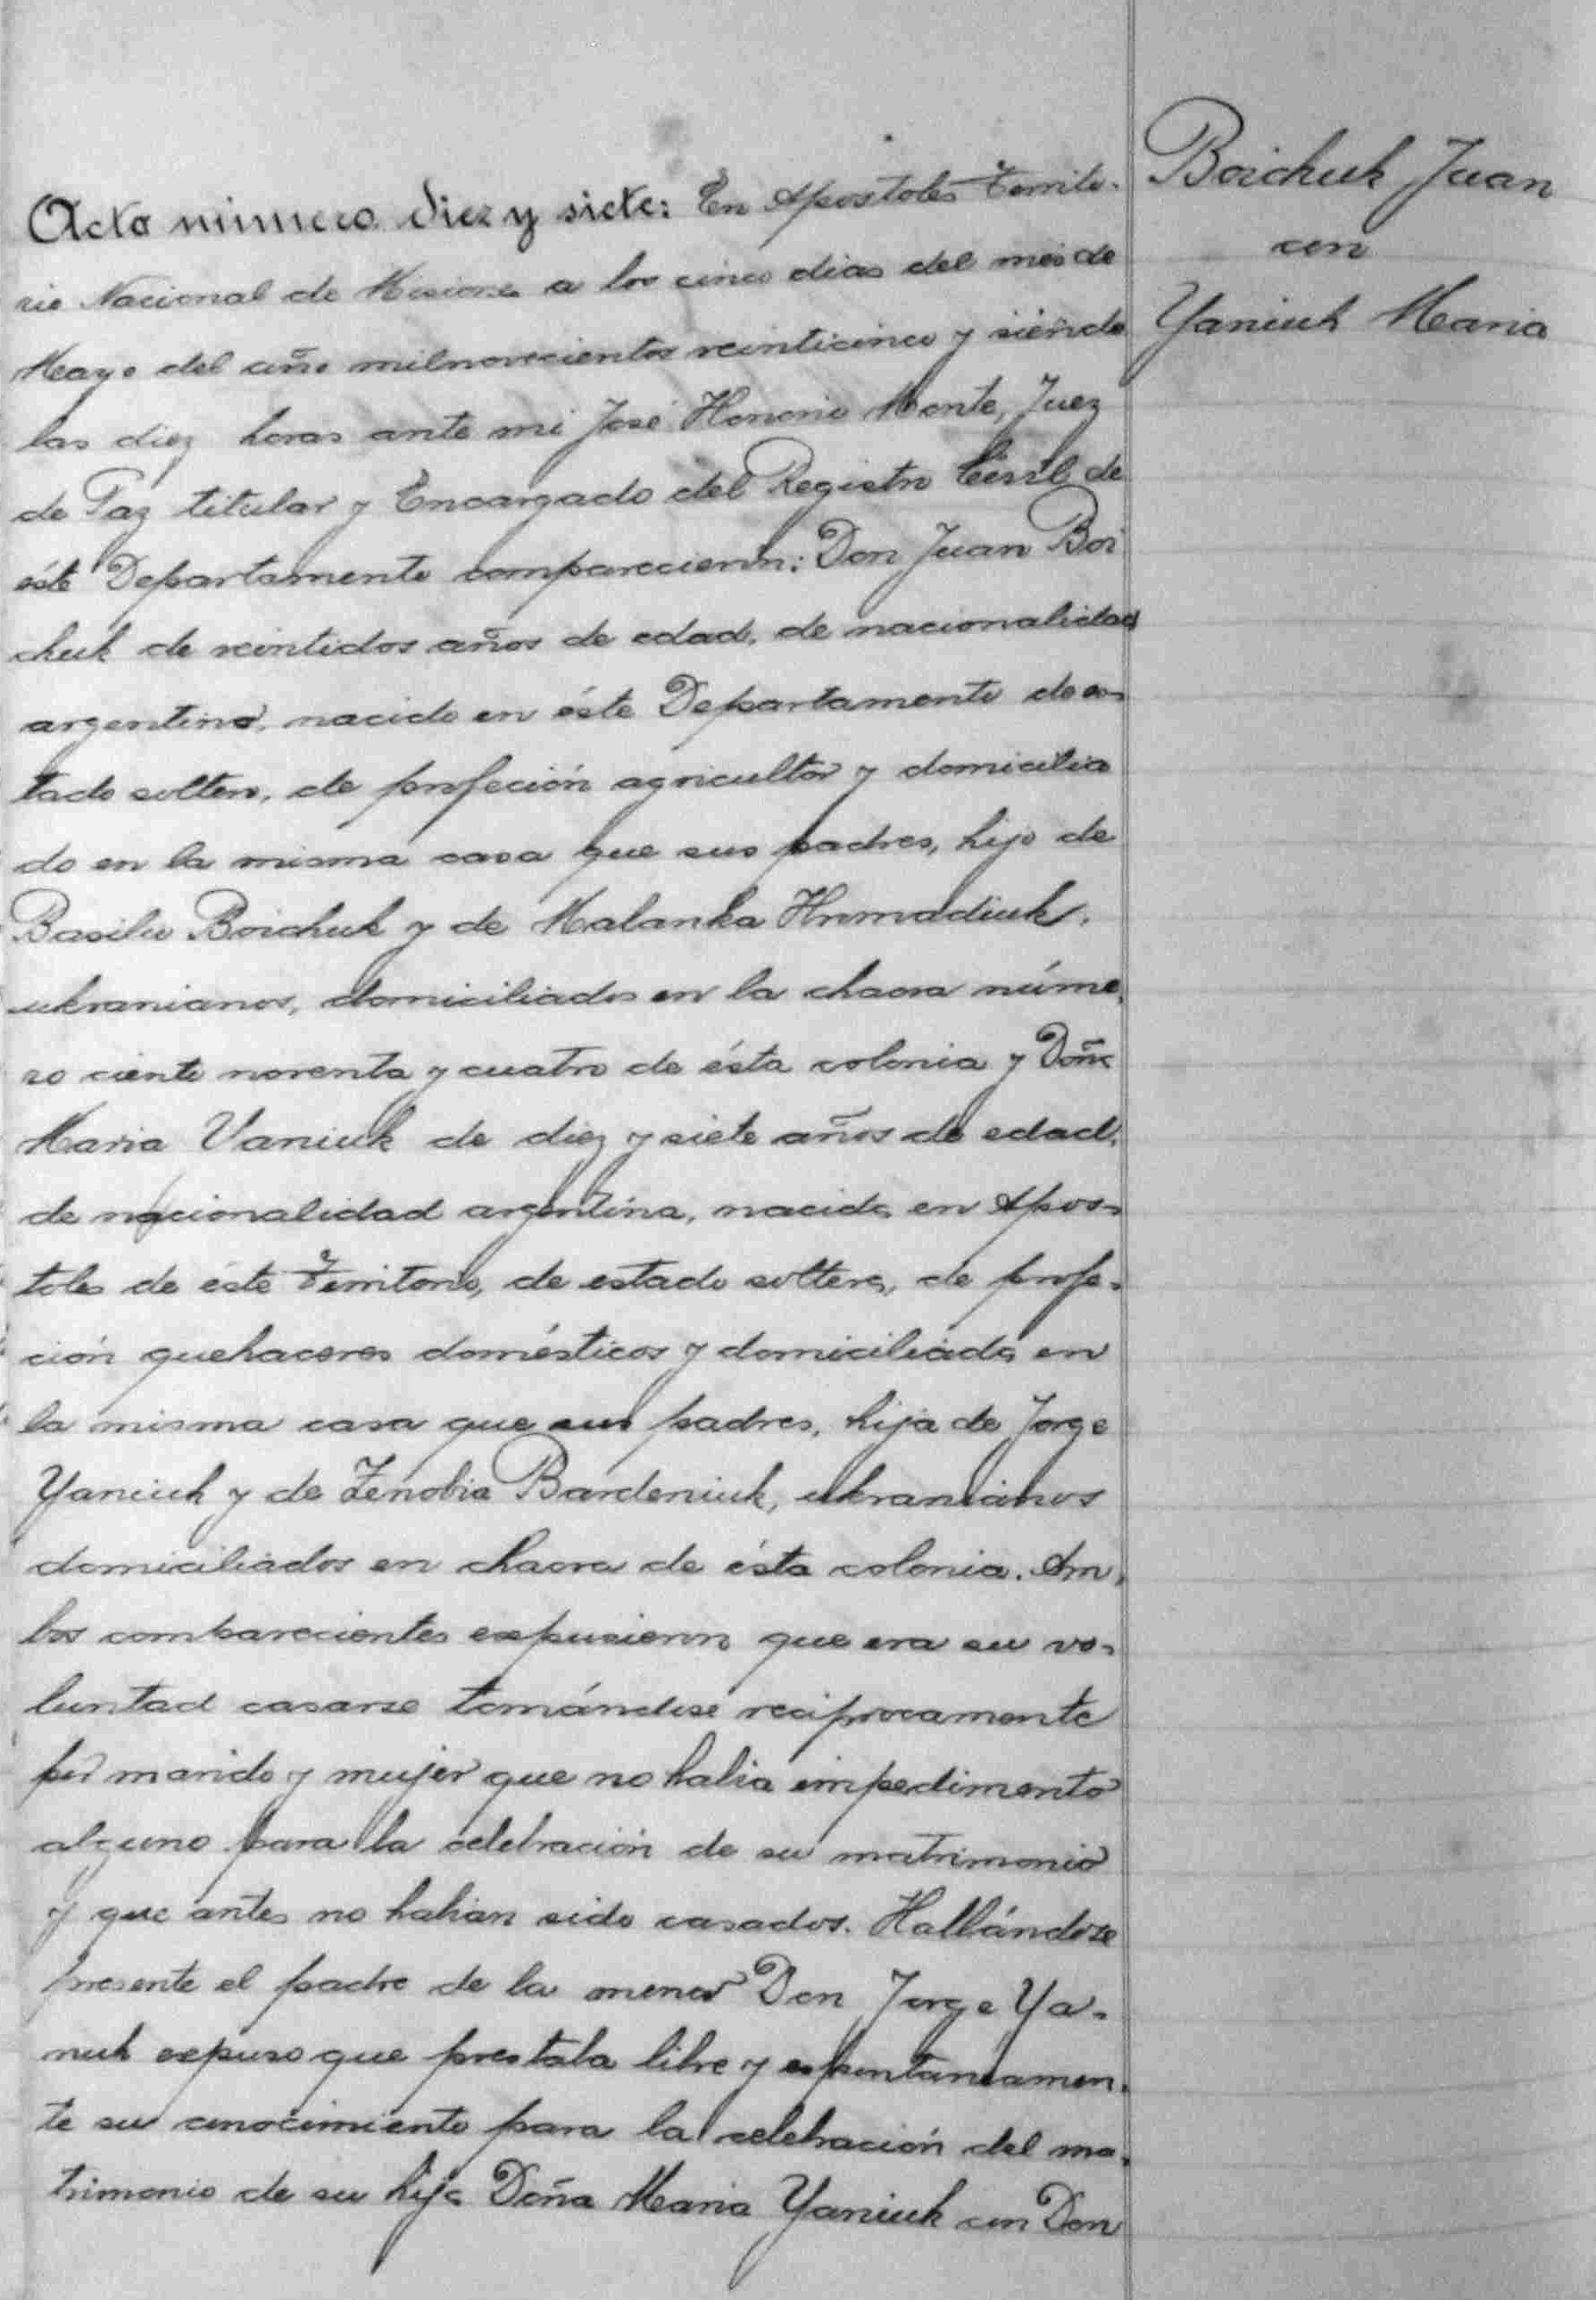 Boichuk Juan
con
Yaniuk Maria
Acta número diez y siete: En Apostoles Territo-
rio Nacional de Misiones a los cinco dias del mes de
Mayo del año milnovecientos veinticinco y siendo
las diez horas ante mi José Honorio Monte, Juez
de Paz titular y Encargado del Registro Civil de
éste Departamento comparecieron: Don Juan Boi
chuk de veintidos años de edad, de nacionalidad
argentino, nacido en éste Departamento de es-
tado soltero, de profeción agricultor y domicilia
do en la misma casa que sus padres, hijo de
Basilio Boichuk y de Malanka Hnmadiuk,
ukranianos, domiciliados en la chacra núme-
ro ciento noventa y cuatro de ésta colonia y Doña
Maria Yaniuk de diez y siete años de edad,
de nacionalidad argentina, nacida en Apos-
toles de éste Territorio, de estado soltera, de profe-
ción quehaceres domésticos y domiciliada en
la misma casa que sus padres, hija de Jorge
Yaniuk y de Zenobia Bardeniuk, ukranianos
domiciliados en chacra de ésta colonia. Am-
bos comparecientes expusieron que era su vo-
luntad casarse tomándose reciprocamente
por marido y mujer que no habia impedimento
alguno para la celebración de su matrimonio
y que antes no habian sido casados. Hallándose
presente el padre de la menor Don Jorge Ya-
nuk expuso que prestaba libre y espontaneamen-
te su conocimiento para la celebración del ma-
trimonio de su hija Doña Maria Yaniuk con Don